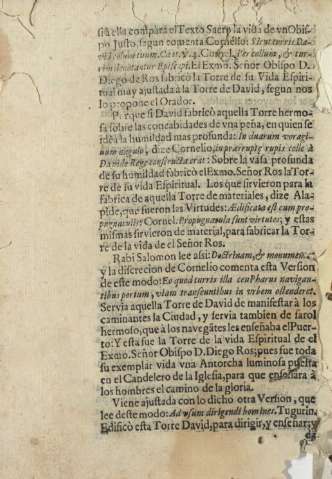 si a ella compara el Texto Sacro la vida de vn Obis-
po Justo, segun comenta Cornelio: Sicut turris Da-
vid, collum tuum. Cant. 4. 4. Corn. l. Per collum, & tur-
rim denotantur Episcopi. El Exmo. Señor Obispo D.
Diego de Ros fabricò la Torre de su Vida Espiri-
tual muy ajustada à la Torre de David, segun nos
lo propone el Orador.
Porque si David fabricò aquella Torre hermo-
sa sobre las concabidades de vna peña, en quien se
ideà la humildad mas profunda: In duarum voragi-
num angulo, dize Cornelio, in præ rupto rupis colle à
Davide Rege constructa erat: Sobre la vasa profunda
de su humildad fabricò el Exmo. Señor Ros la Tor-
re de su vida Espiritual. Los que sirvieron para la
fabrica de aquella Torre de materiales, dize Ala-
pide, que fueron las Virtudes: Ædificata est cum pro-
pugnaculis: Cornel. Propugnacula sunt virtutes; y estas
mismas sirvieron de material, para fabricar la Tor-
re de la vida de el Señor Ros.
Rabi Salomon lee assi: Doctrinam, & monumen.
y la discrecion de Cornelio comenta esta Version
de este modo: Eo quod turris illa ceu Pharus navigan-
tibus portum, viam transeuntibus in vrbem ostenderet.
Servia aquella Torre de David de manifestar à los
caminantes la Ciudad, y servia tambien de farol
hermoso, que à los navegãtes les enseñaba el Puer-
to: Y esta fue la Torre de la vida Espiritual de el
Exmo. Señor Obispo D. Diego Ros; pues fue toda
su exemplar vida vna Antorcha luminosa puesta
en el Candelero de la Iglesia, para que enseñara à
los hombres el camino de la gloria.
Viene ajustada con lo dicho otra Version, que
lee deste modo: Ad vsum dirigendi homines. Tugurin.
Edificò esta Torre David, para dirigir, y enseñar; y